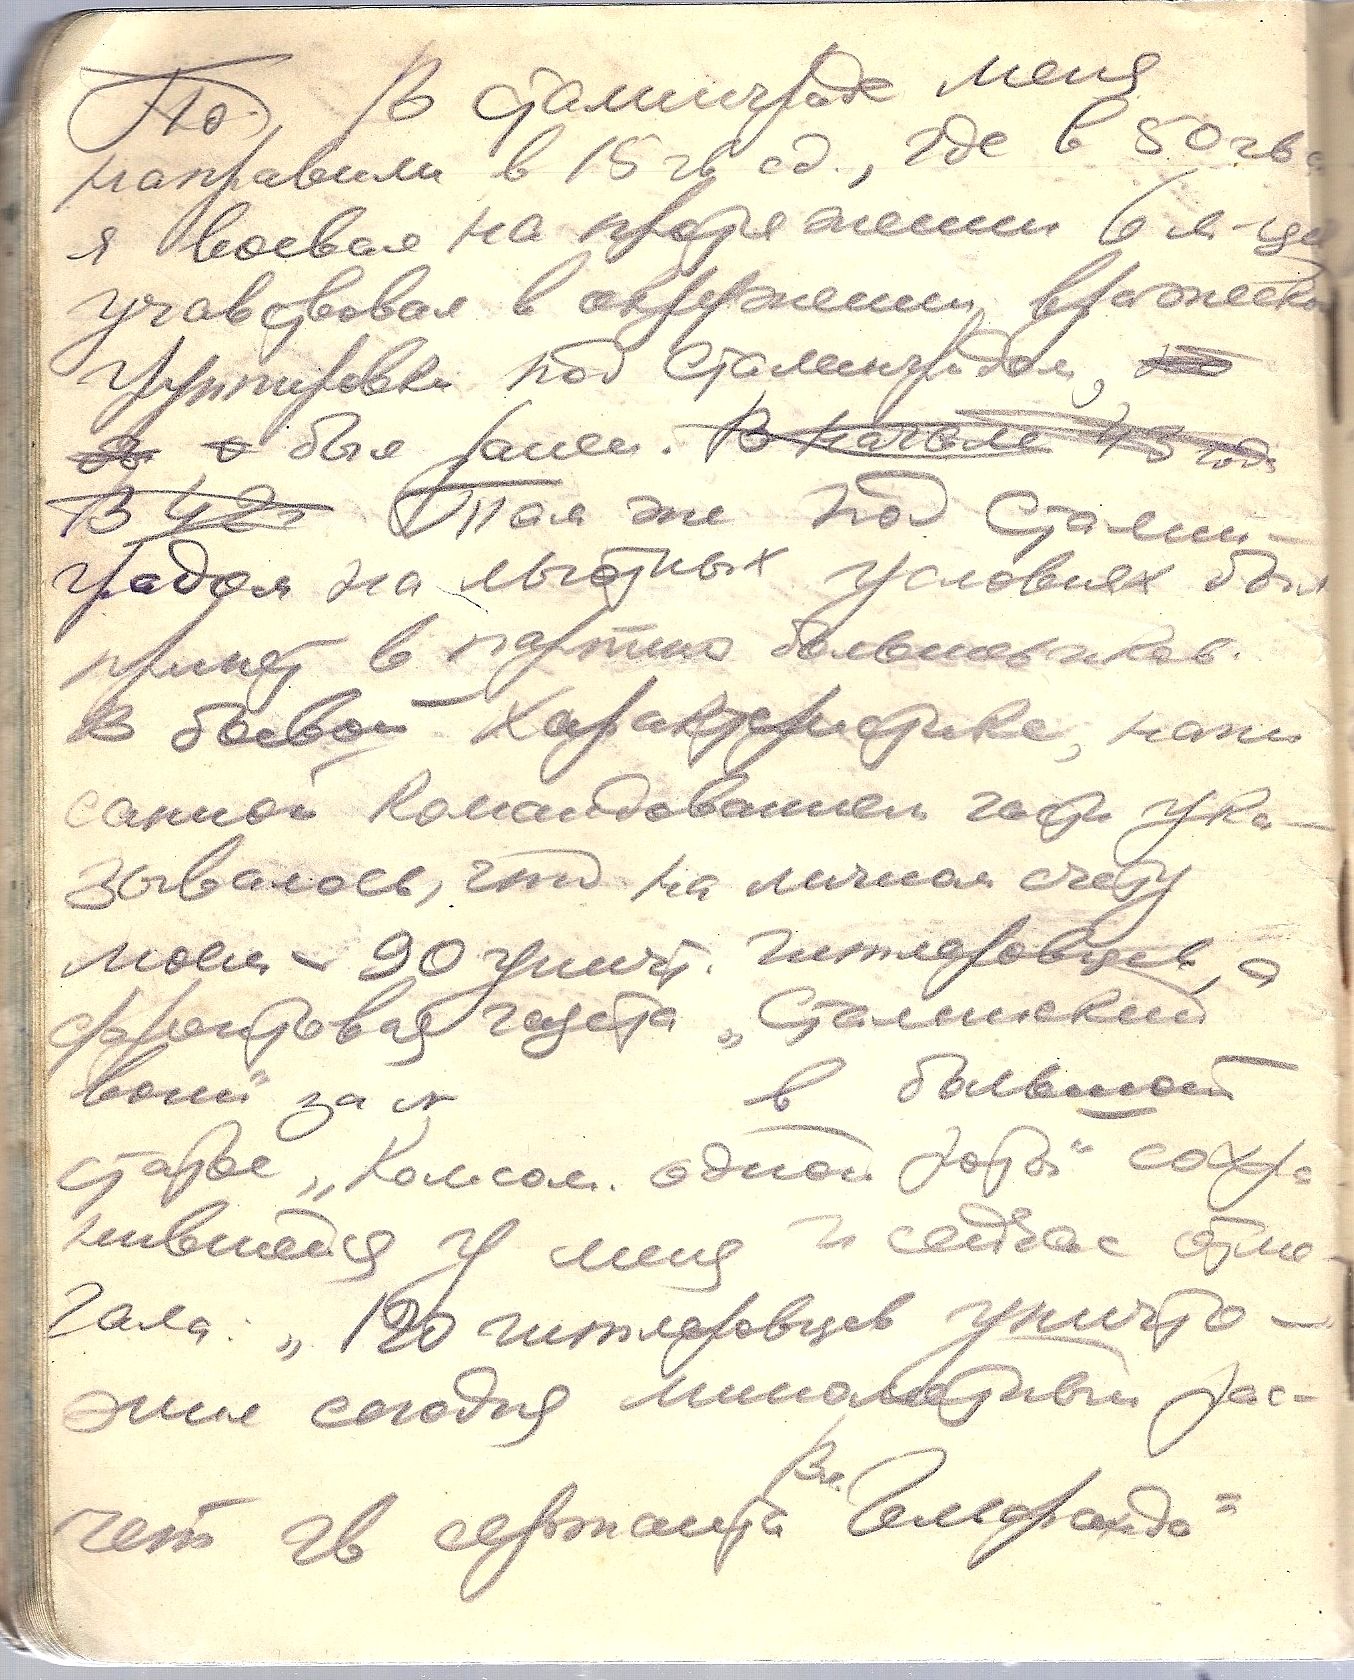 В Сталинграде меня
направили в 15 гв сд., где в 50 гв с
я воевал на протяжении 6 м-це
учавствовал в окружении вражеско
группировки под Сталинградом,
был ранен. В начале 43 года
В 42 г Там же под Сталин-
градом на льготных условиях был
принят в партию большевиков.
В боевой характеристике, напи
санной командованием части ука-
зывалось, что на личном счету
моем - 90 уничт. гитлеровцев, а
фронтовая газета „Сталинский
воин" за в большой
статье „Комсом. одной роты" сохра-
нившейся у меня и сейчас отме-
чала: „120 гитлеровцев уничто-
жил сегодня минометный рас-
чет гв сержанта Вл. Гельфанда"